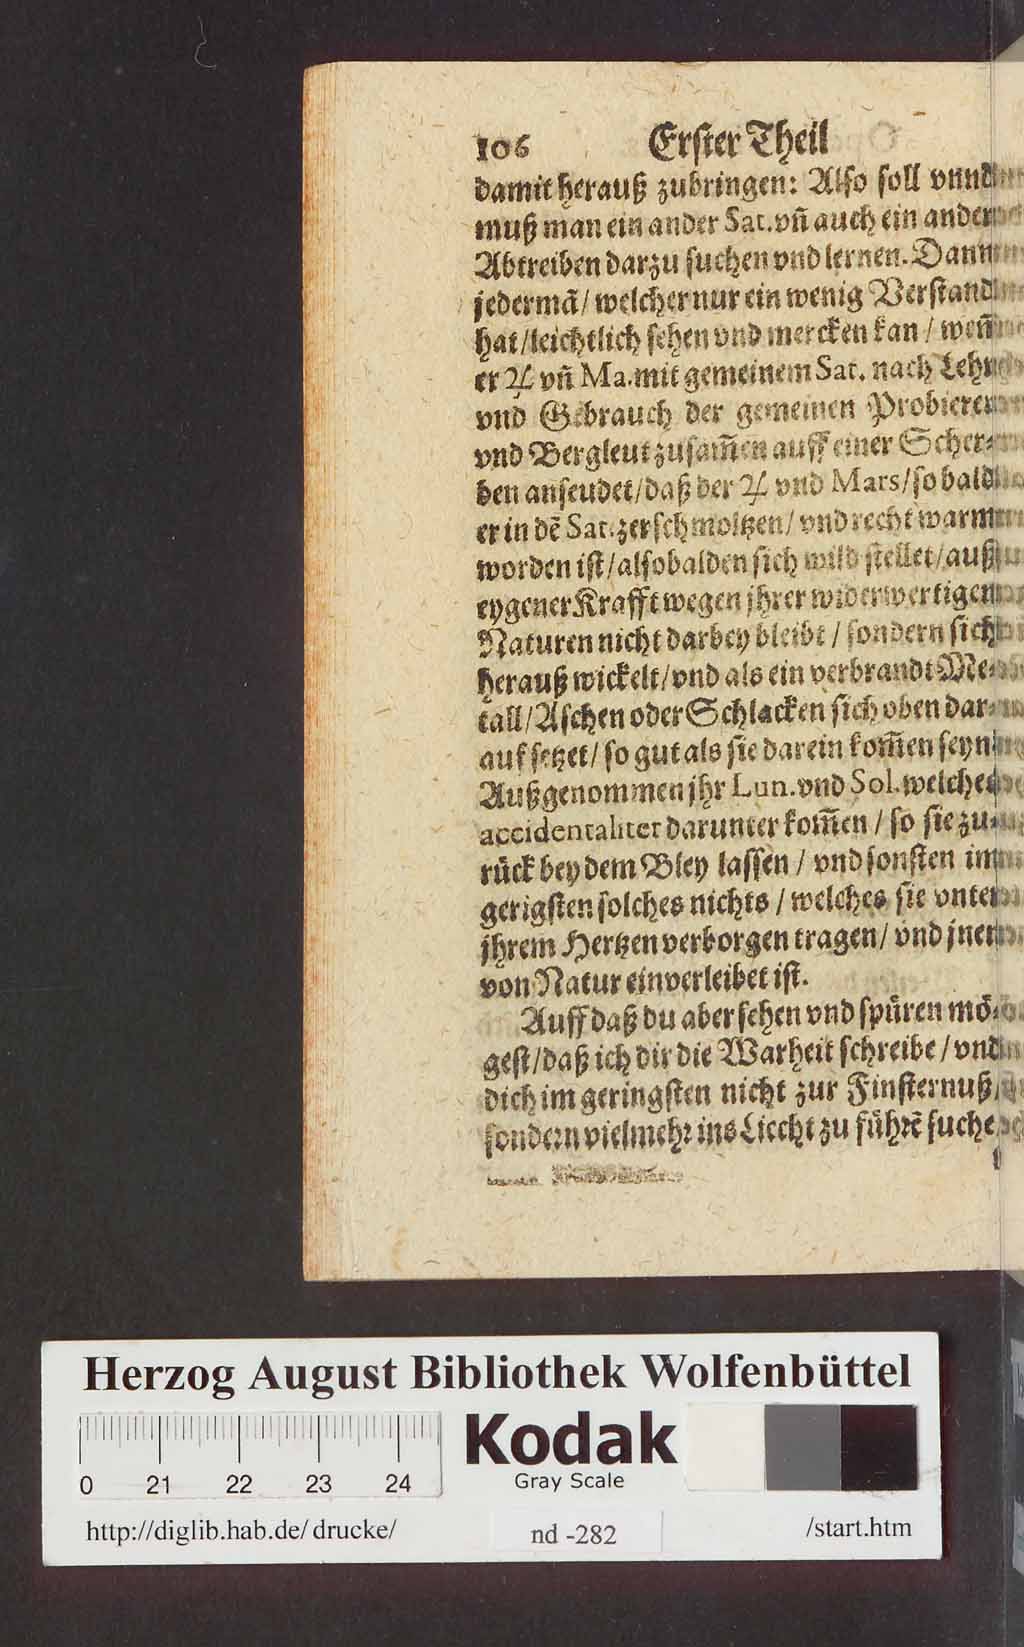 106 Erster Theil
damit herauß zubringen: Also soll vnnd
muß man ein ander Sat. vñ auch ein ander
Abtreiben darzu suchen vnd lernen. Dann
jedermā / welcher nur ein wenig Verstand
hat / leichtlich sehen vnd mercken kan / weñ
er ♃ vñ Ma. mit gemeinem Sat. nach Lehr
vnd Gebrauch der gemeinen Probierer
vnd Bergleut zusam̄en auff einer Scher-
ben anseudet / daß der ♃ vnd Mars / so bald
er in dē Sat. zerschmoltzen / vnd recht warm
worden ist / alsobalden sich wild stellet / auß
eygener Krafft wegen jhrer widerwertigen
Naturen nicht darbey bleibt / sondern sich
herauß wickelt / vnd als ein verbrandt Me-
tall / Aschen oder Schlacken sich oben dar-
auf setzet / so gut als sie darein kom̄en seyn
Außgenommen jhr Lun. vnd Sol. welches
accidentaliter darunter kom̄en / so sie zu-
rück bey dem Bley lassen / vnd sonsten im
gerigsten solches nichts / welches sie vnter
jhrem Hertzen verborgen tragen / vnd jnen
von Natur einverleibet ist.
Auff daß du aber sehen vnd spüren mö-
gest / daß ich dir die Warheit schreibe / vnd
dich im geringsten nicht zur Finsternuß /
sondern vielmehr ins Liecht zu führē suche
Herzog August Bibliothek Wolfenbüttel
0 21 22 23 24
Kodak
Gray Scale
http://diglib.hab.de/drucke/ nd -282 /start.htm